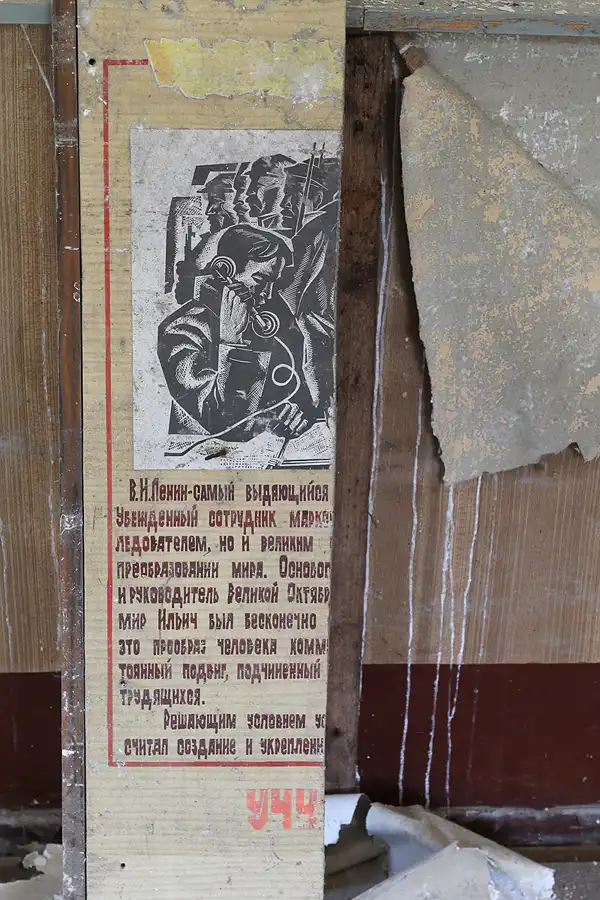 В.И.Ленин-самый выдающийся
убежденный сотрудник маркс
ледователем, но и великим
преобразовании мира. Основоп
и руководитель Великой Октябр
мир Ильич был бесконечно
это прообраз человека комм
тоянный подвиг, подчиненный
трудящихся.
Решающим условием ус
считал создание и укреплени
УЧЧ